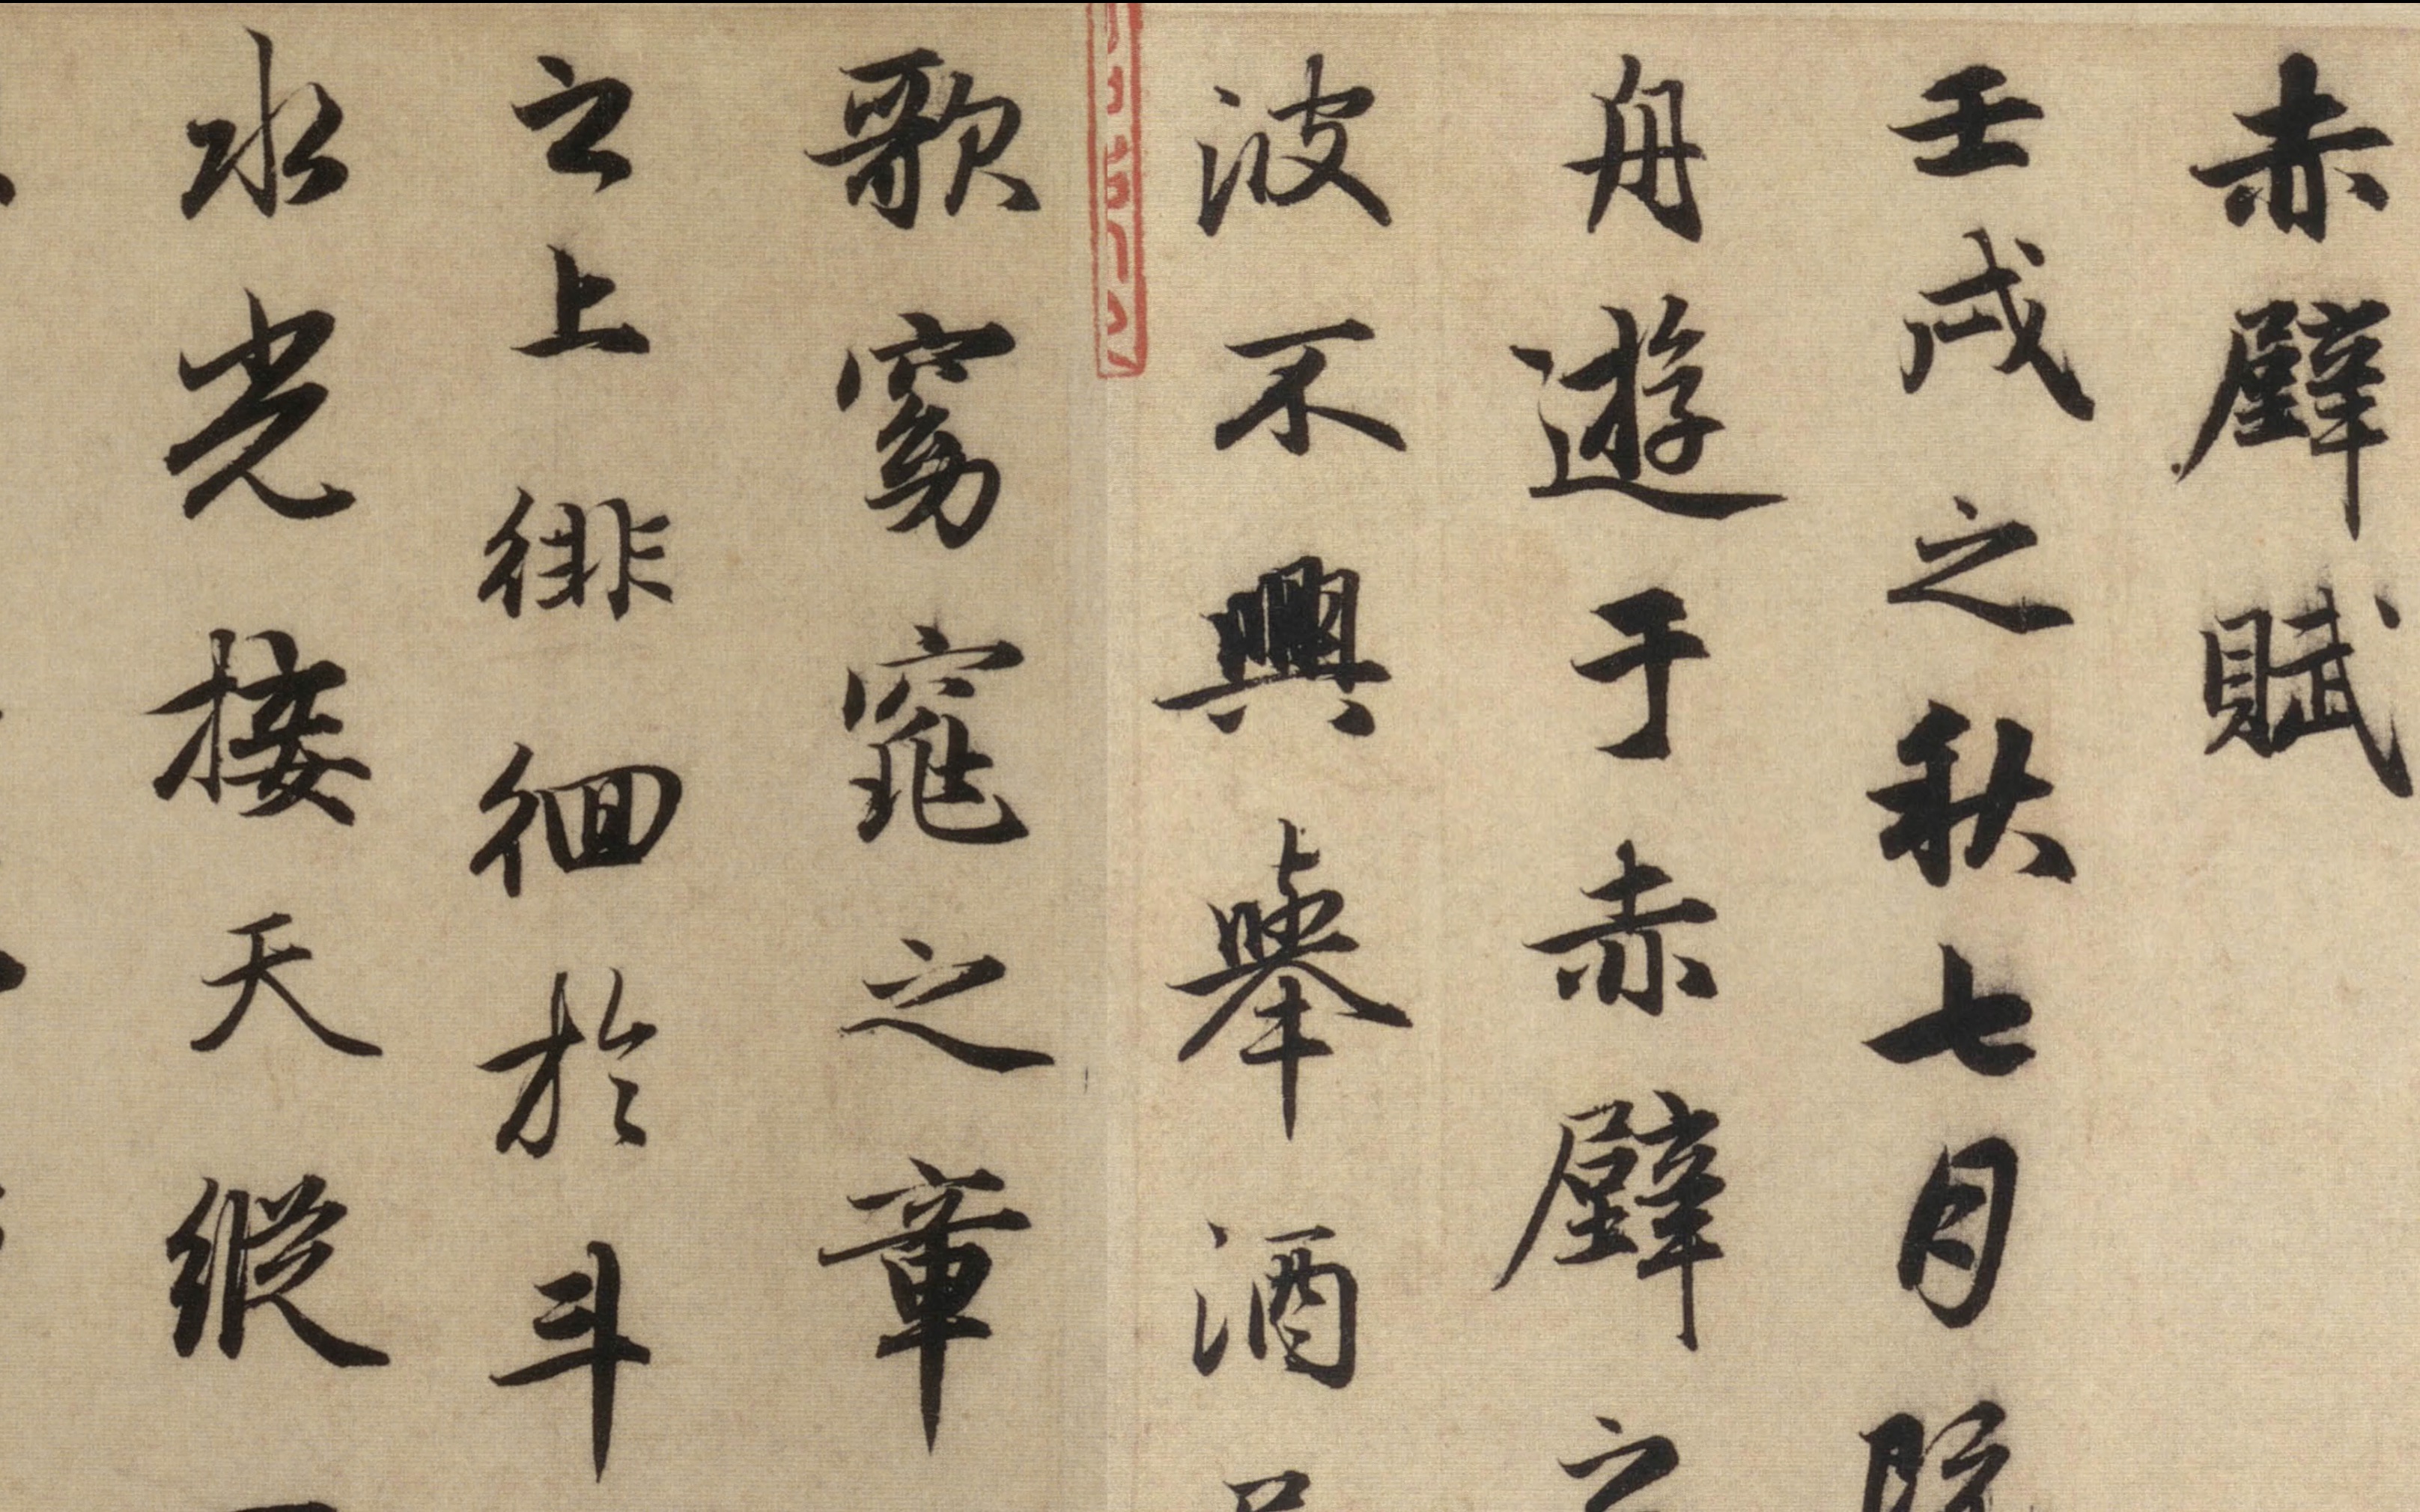 赤壁賦
壬戌之秋七月既
舟遊于赤壁之
波不興舉酒
歌窈窕之章
之上徘徊於斗
水光接天縱